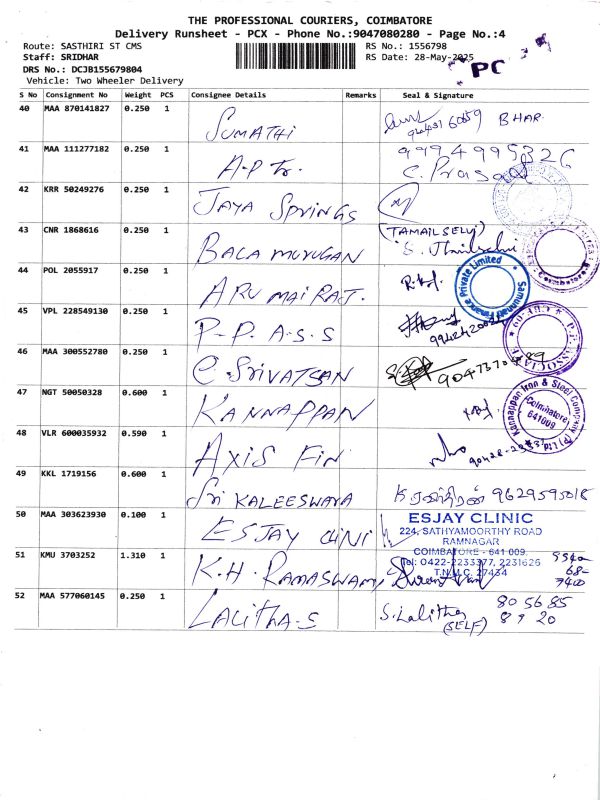 THE PROFESSIONAL COURIERS, COIMBATORE
Delivery Runsheet - PCX - Phone No.:9047080280 - Page No.:4
Route: SASTHIRI ST CMS
RS No.: 1556798
Staff: SRIDHAR
RS Date: 28-May-2025
DRS No.: DCJB155679804
PC
Vehicle: Two Wheeler Delivery
S No Consignment No Weight PCS Consignee Details Remarks Seal & Signature
40 MAA 870141827 0.250 1 SUMATHI BHAR
41 MAA 111277182 0.250 1 A.P Tr. 9994995326
C. Prasad
42 KRR 50249276 0.250 1 JAYA SPRINGS
43 CNR 1868616 0.250 1 BALA MURUGAN (TAMAILSELVI)
Coimbatore
44 POL 2055917 0.250 1 ARU MAI RAJ.
Samunnati Finance Private Limited
45 VPL 228549130 0.250 1 P-P. A.S.S
46 MAA 300552780 0.250 1 C. SRIVATSAN
47 NGT 50050328 0.600 1 KANNAPPAN
Kannappan Iron & Steel Company (P) Ltd
Coimbatore
641009
48 VLR 600035932 0.590 1 AXIS FIN
49 KKL 1719156 0.600 1 Sri KALEESWARA 9629595018
50 MAA 303623930 0.100 1 ESJAY CLINI
ESJAY CLINIC
224, SATHYAMOORTHY ROAD
RAMNAGAR
COIMBATORE - 641 009.
Tel: 0422-2233377, 2231626
T.N.M.C. 27434
51 KMU 3703252 1.310 1 K.H. RAMASWAMY
52 MAA 577060145 0.250 1 LALITHA-S S. Lalitha
(SELF)
80 56 85
89 20